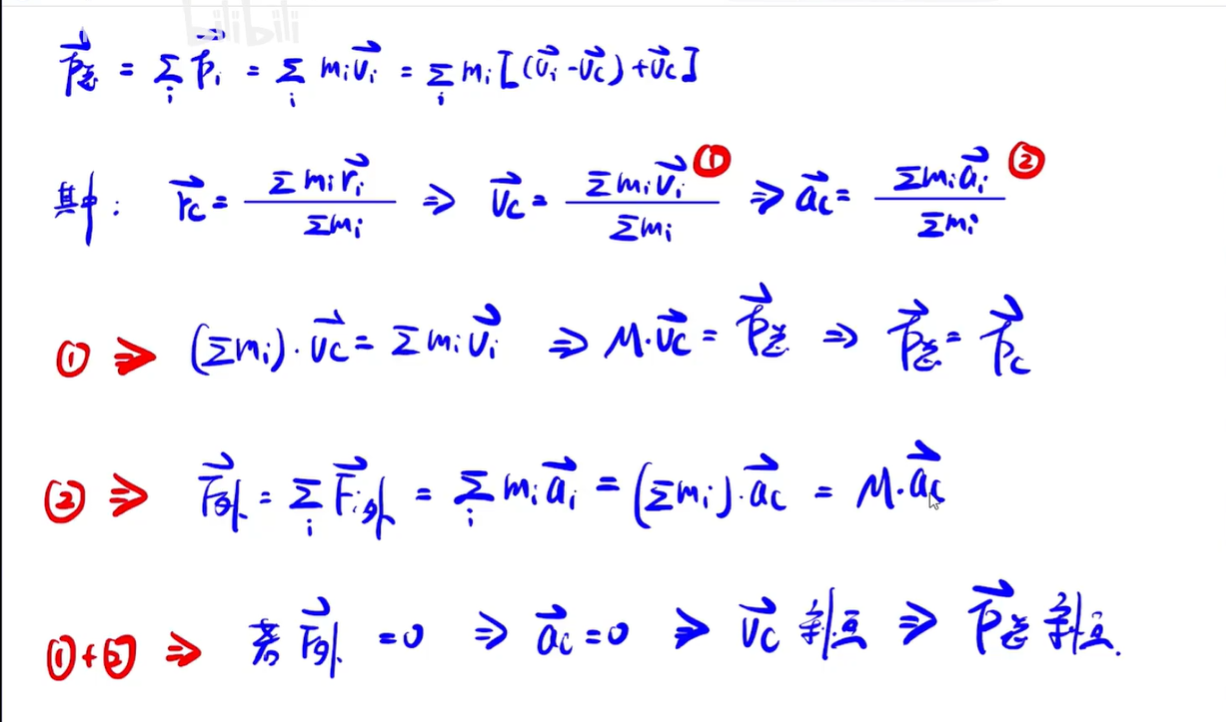 bilibili
p⃗总 = Σᵢ p⃗ᵢ = Σᵢ mᵢv⃗ᵢ = Σᵢ mᵢ[(v⃗ᵢ - v⃗c) + v⃗c]
其中: r⃗c = Σmᵢr⃗ᵢ / Σmᵢ ⇒ v⃗c = Σmᵢv⃗ᵢ / Σmᵢ ① ⇒ a⃗c = Σmᵢa⃗ᵢ / Σmᵢ ②
① ⇒ (Σmᵢ)·v⃗c = Σmᵢv⃗ᵢ ⇒ M·v⃗c = p⃗总 ⇒ p⃗总 = p⃗c
② ⇒ F⃗外 = Σᵢ F⃗ᵢ外 = Σᵢ mᵢa⃗ᵢ = (Σmᵢ)·a⃗c = M·a⃗c
①+② ⇒ 若 F⃗外 = 0 ⇒ a⃗c = 0 ⇒ v⃗c 守恒 ⇒ p⃗总 守恒.